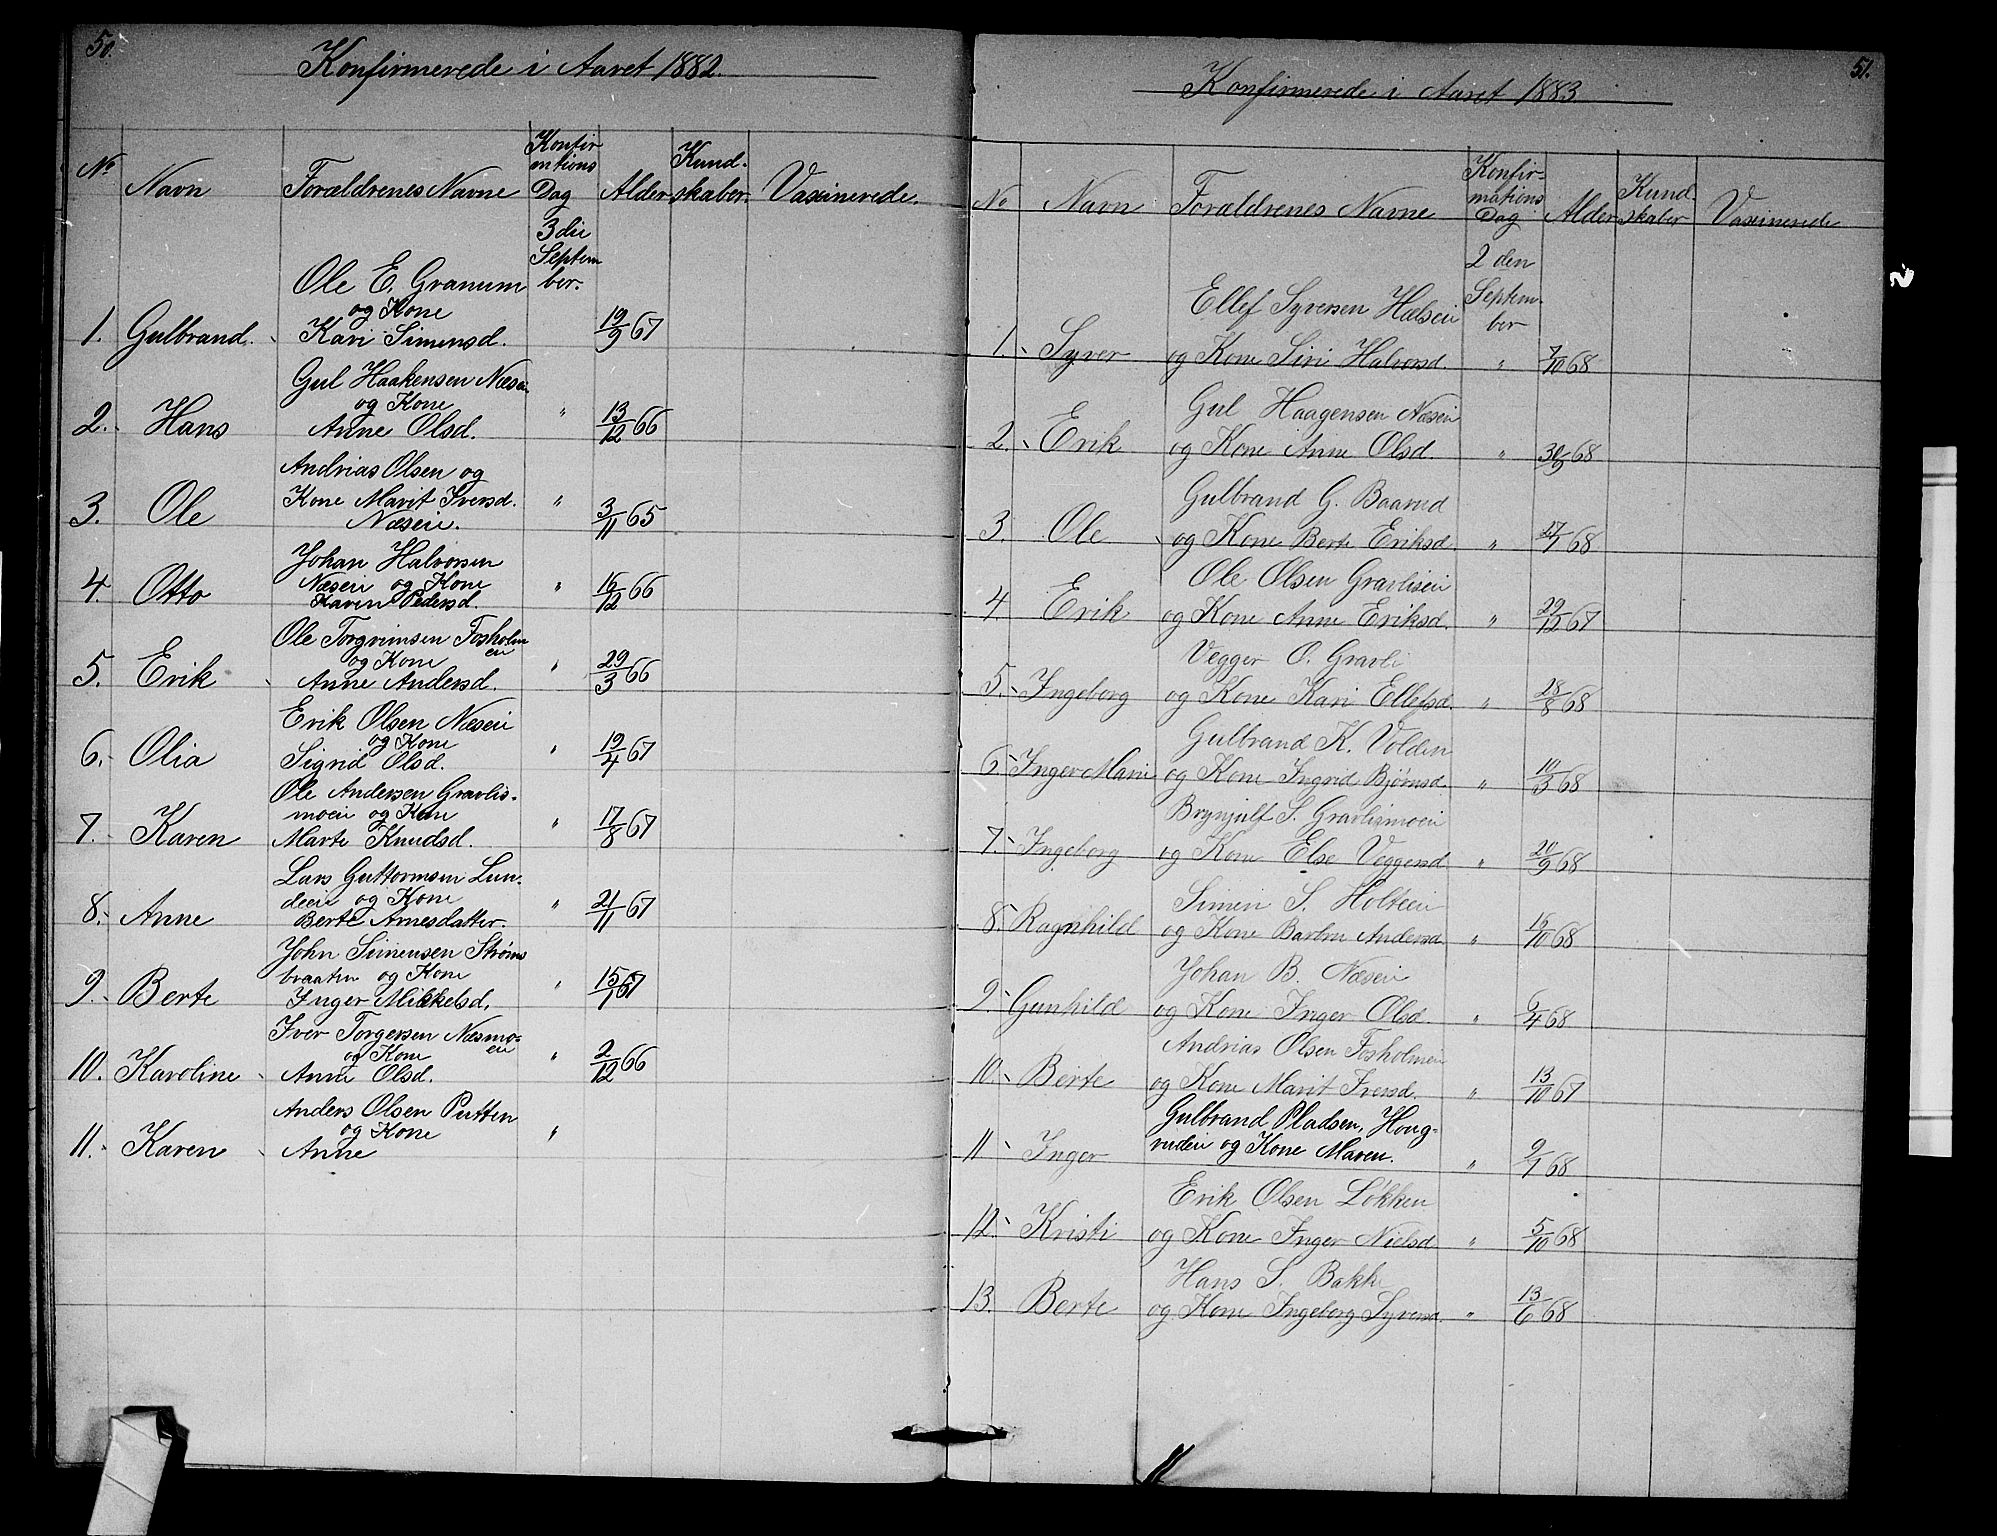 50.
Konfirmerede i Aaret 1882.
No Navn Forældrenes Navne Konfirmations Dag Alder Kundskaber. Vaxinerede.
3die Septem
ber.
Ole E. Granum
og Kone
1. Gulbrand. Kari Simensd. 19/9 67
Gul Haakensen Næsei
og Kone
2. Hans Anne Olsd. " 13/12 66
Andrias Olsen og
Kone Marit Iversd.
3. Ole Næseie. " 3/11 65
Johan Halvorsen
Næseie og Kone
4. Otto Karen Pedersd. " 16/12 66
Ole Torgrimsen Fosholm
eie
og Kone
5. Erik Anne Andersd. " 29/3 66
Erik Olsen Næseie
og Kone
6. Olia Sigrid Olsd. " 19/4 67
Ole Andersen Gravlis-
moeie og Kone
7. Karen Marte Knudsd. " 17/8 67
Lars Guttormsen Lun-
deeie og Kone
8. Anne Berte Arnesdatter. " 21/11 67
John Simensen Strøms
braaten og Kone
9. Berte Inger Mikkelsd. " 15/1 67
Iver Torgersen Næsmo-
eie
og Kone
10. Karoline Anne Olsd. " 2/12 66
Anders Olsen Putten
og Kone
11. Karen Anne "
51.
Konfirmerede i Aaret 1883
No Navn Forældrenes Navne Konfirmations Dag Alder Kundskaber Vaxinerede
2 den
Septem-
ber
Ellef Syversen Hælseie
1. Syver og Kone Siri Halvorsd. " 7/10 68
Gul Haagensen Næseie
2. Erik og Kone Anne Olsd. " 30/9 68
Gulbrand G. Baarud
3. Ole og Kone Berte Eriksd. " 17/7 68
Ole Olsen Gravliseie
4. Erik og Kone Anne Eriksd. " 29/12 67
Vegger O. Gravli
5. Ingeborg og Kone Kari Ellefsd. " 28/8 68
Gulbrand K. Volden
6. Inger Marie og Kone Ingrid Bjørnsd. " 10/3 68
Brynjulf S. Gravlismoeie
7. Ingeborg og Kone Else Veggersd " 20/9 68
Simen S. Holteeie
8. Ragnhild og Kone Barbra Andersd. " 16/10 68
Johan B. Næseie
9. Gunhild og Kone Inger Olsd. " 6/4 68
Andrias Olsen Fosholmeie
10. Berte og Kone Marit Iversd. " 13/10 67
Gulbrand Pladsen, Houg-
rudeie og Kone Maren.
11 Inger " 9/1 68
Erik Olsen Løkken
12. Kristi og Kone Inger Nielsd " 5/10 68
Hans S. Bakke
13. Berte og Kone Ingeborg Syversd. " 13/6 68